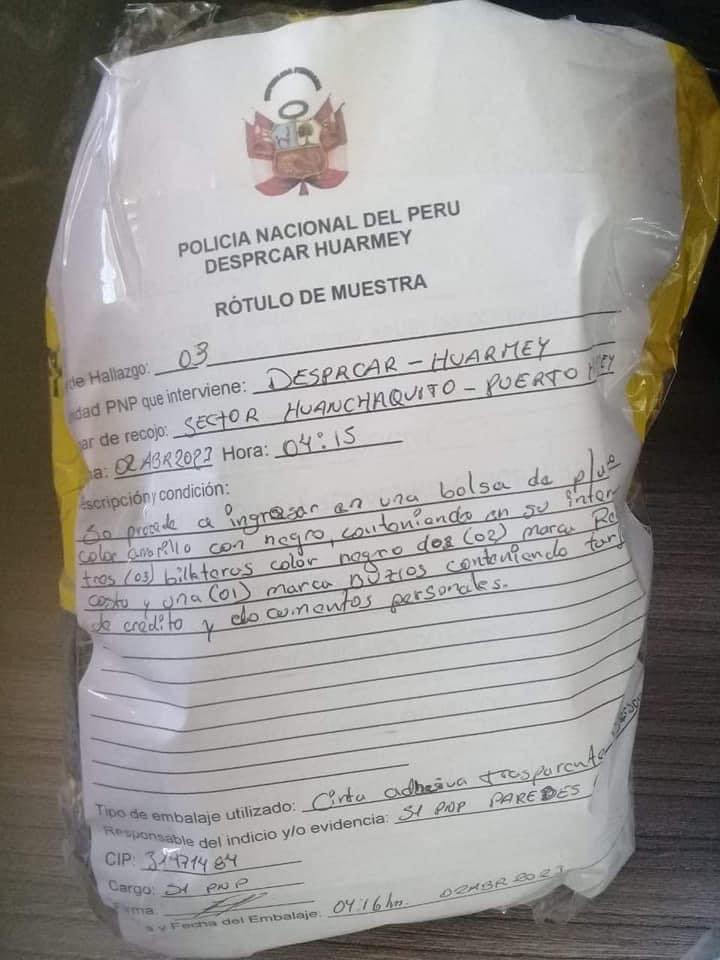 POLICIA NACIONAL DEL PERU
DESPRCAR HUARMEY
RÓTULO DE MUESTRA
de Hallazgo: 03
idad PNP que interviene: DESPRCAR - HUARMEY
ar de recojo: SECTOR HUANCHAQUITO - PUERTO
a: 02 ABR 2023 Hora: 04:15
escripción y condición:
Se procede a ingresar en una bolsa de
color amarillo con negro, conteniendo en su inter
tres (03) billeteras color negro dos (02) marca Re
costo y una (01) marca conteniendo tarj
de crédito y documentos personales.
Tipo de embalaje utilizado: Cinta adhesiva trasparente
Responsable del indicio y/o evidencia: S1 PNP PAREDES
CIP: 31471484
Cargo: S1 PNP
Firma:
a y Fecha del Embalaje: 04:16 hr. 02 ABR 2023